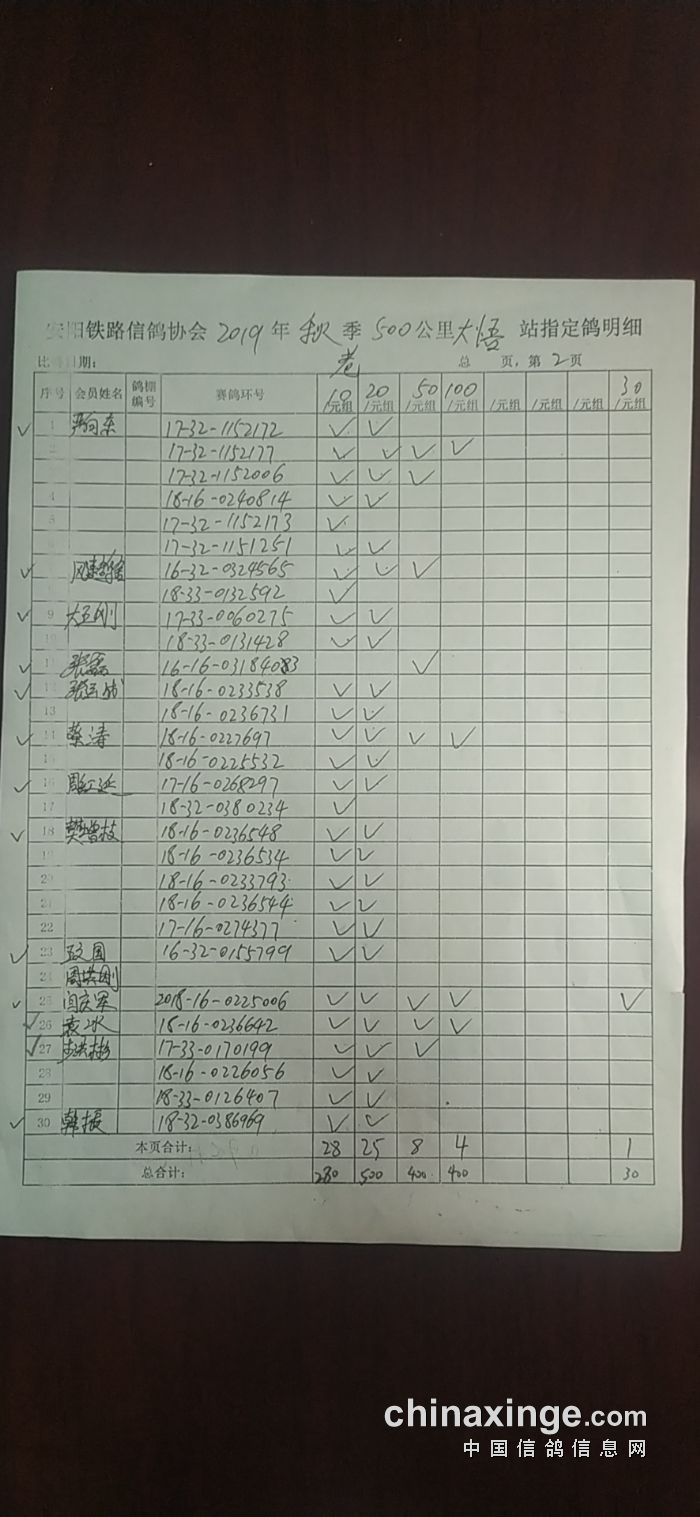 阳铁路信鸽协会 2019 年 秋 季 500 公里 大悟 站指定鸽明细
老
比 日期: 总 页, 第 2 页
序号 会员姓名 鸽棚编号 赛鸽环号 10/元组 20/元组 50/元组 100/元组 /元组 /元组 /元组 30/元组
✓ 1 17-32-1152172 ✓ ✓
2 17-32-1152177 ✓ ✓ ✓ ✓
17-32-1152006 ✓ ✓ ✓
4 18-16-0240814 ✓ ✓
5 17-32-1152173 ✓
17-32-1151251 ✓ ✓
✓ 16-32-0324565 ✓ ✓ ✓
18-33-0132592 ✓
✓ 9 17-33-0060275 ✓ ✓
10 18-33-0131428 ✓ ✓
✓ 11 张磊 16-16-03184083 ✓
✓ 12 18-16-0233538 ✓ ✓
13 18-16-0236731 ✓ ✓
✓ 14 蔡涛 18-16-0227697 ✓ ✓ ✓ ✓
15 18-16-0225532 ✓ ✓
✓ 16 17-16-0268297 ✓ ✓
17 18-32-0380234 ✓
✓ 18 樊增技 18-16-0236548 ✓ ✓
19 18-16-0236534 ✓ ✓
20 18-16-0233793 ✓ ✓
21 18-16-0236544 ✓ ✓
22 17-16-0274377 ✓ ✓
✓ 23 16-32-0155799 ✓ ✓
24 周洪刚
✓ 25 闫庆军 2018-16-0225006 ✓ ✓ ✓ ✓ ✓
✓ 26 袁冰 18-16-0236642 ✓ ✓ ✓ ✓
✓ 27 17-33-0170199 ✓ ✓ ✓
28 18-16-0226056 ✓ ✓
29 18-33-0126407 ✓ ✓
✓ 30 韩振 18-32-0386969 ✓ ✓
本页合计: 28 25 8 4 1
总合计: 280 500 400 400 30
chinaxinge.com
中国信鸽信息网